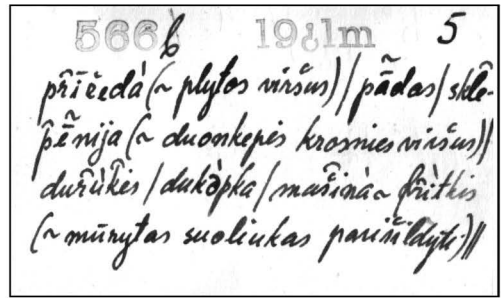 566 b 19¿1m 5
pri̇̃žeda᷄ (~ plytos viršus) / pãdas / sklė-
pẽnija (~ duonkepės krosnies viršus) //
durùkės / dukòpka / mašinà ~ frìtkis
(~ mūrytas suoliukas pasišildyti) //